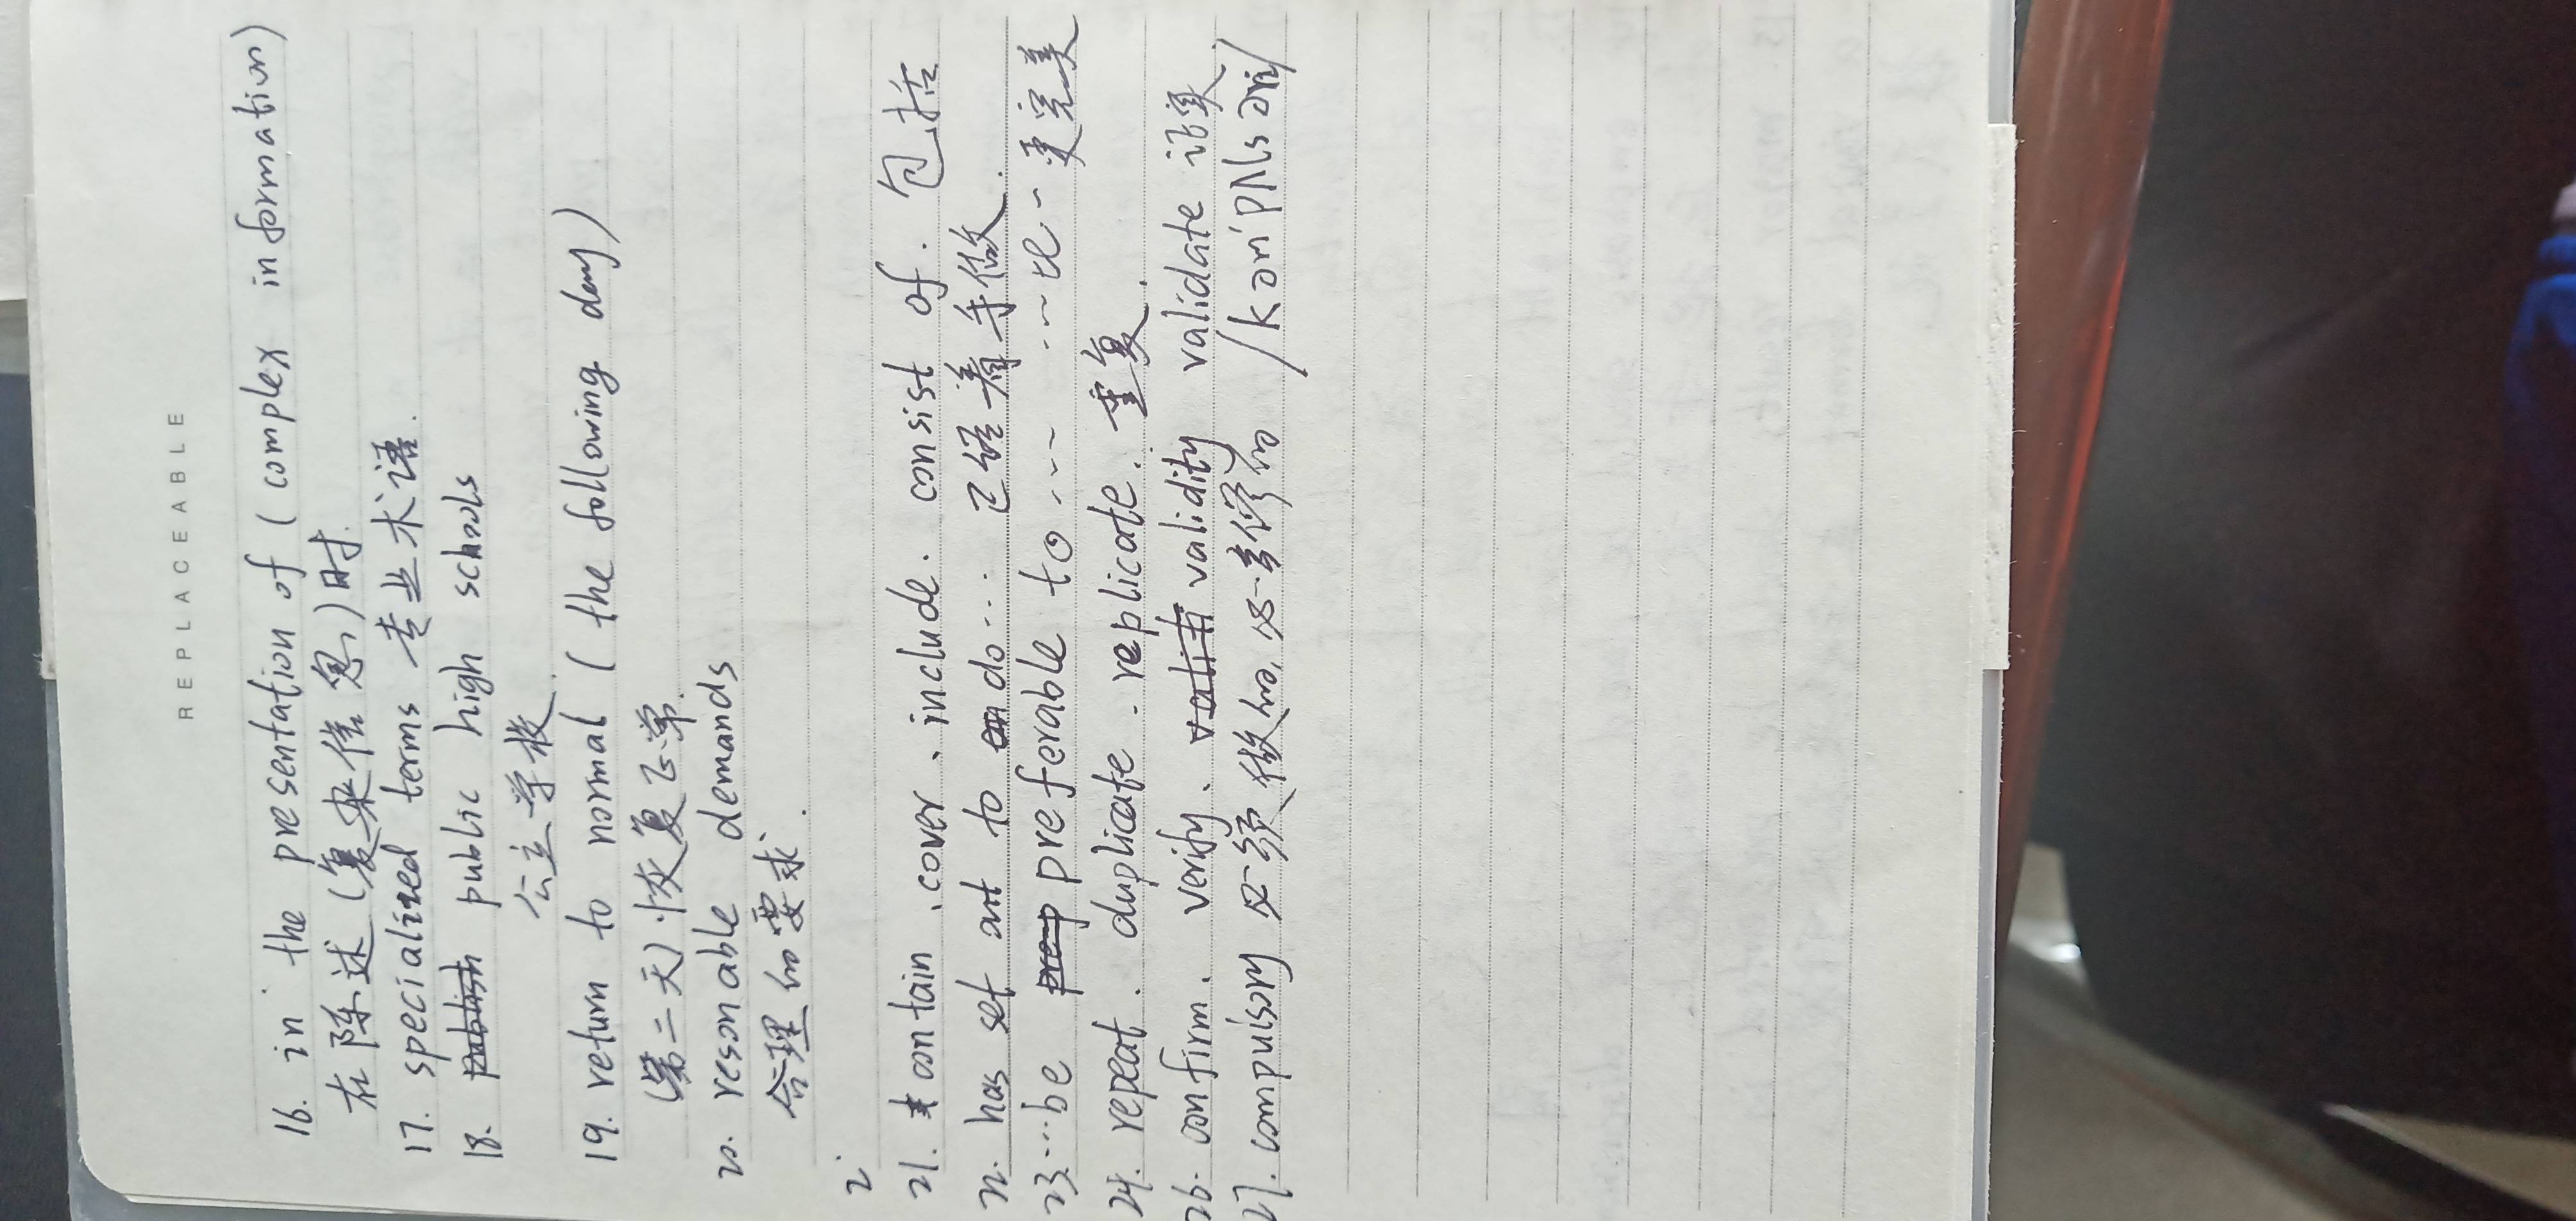 REPLACEABLE
16. in the presentation of (complex information)
在陈述(复杂信息)时.
17. specialized terms 专业术语.
18. public high schools
公立学校.
19. return to normal (the following day)
(第二天)恢复正常.
20. resonable demands
合理的要求.
2.
21. contain. cover. include. consist of. 包括
22. has set out to do... 已经着手做.
23....be preferable to ... ...比...更完美
24. repeat. duplicate. replicate. 重复.
26. confirm. verify. validity validate 证实
27. compulsory 必须做的. 必修的 /kəm'pʌlsəri/